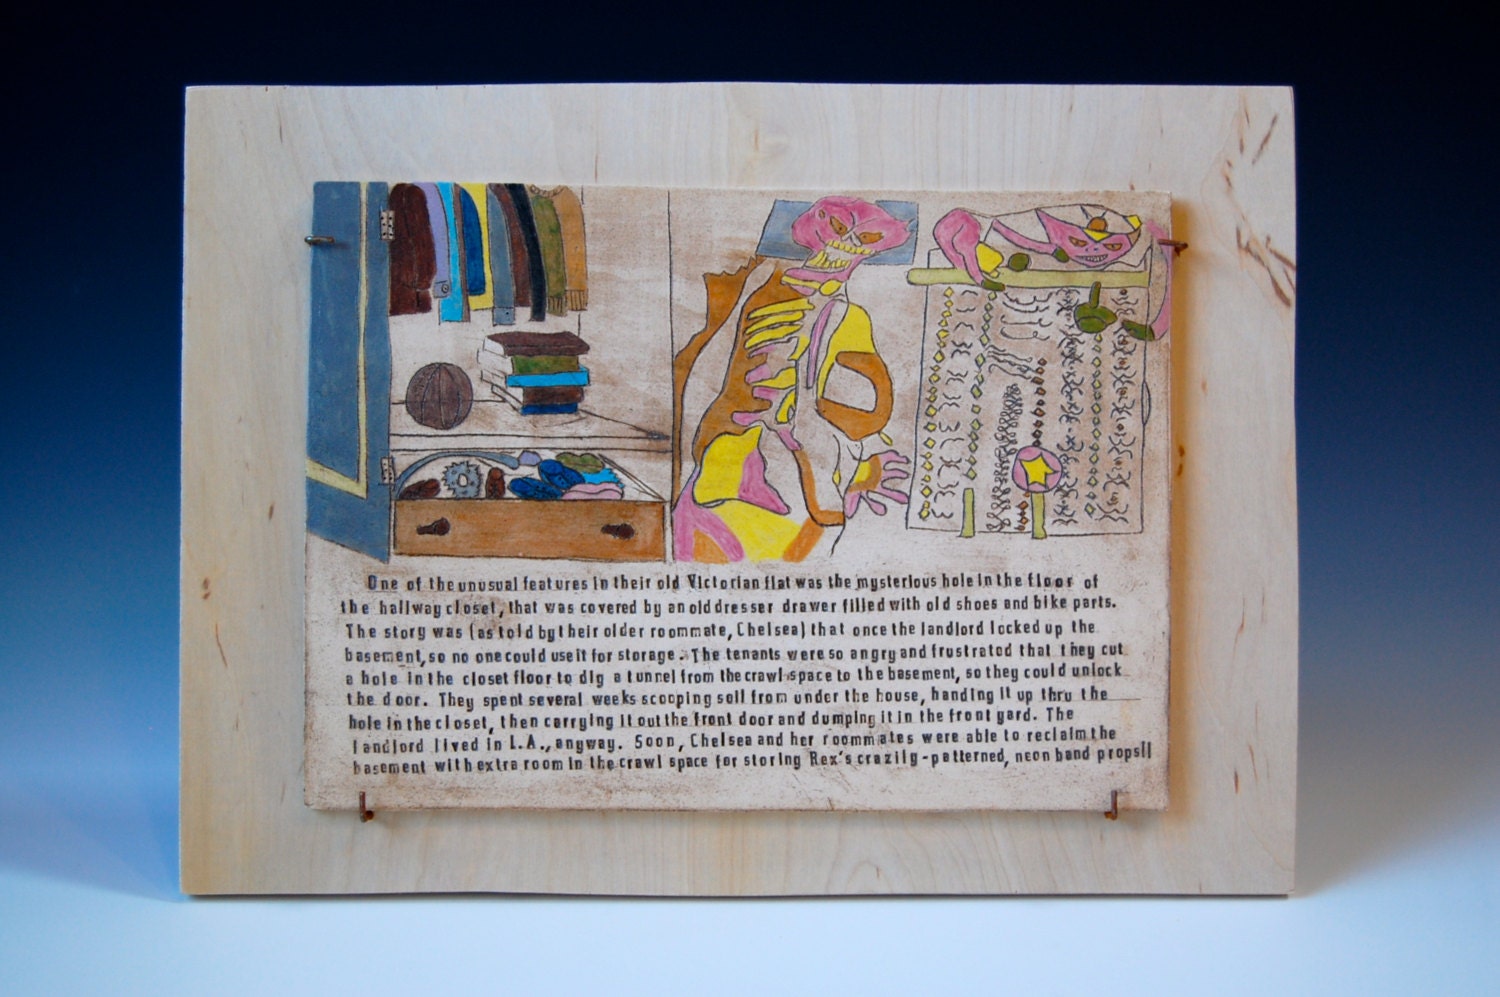 One of the unusual features in their old Victorian flat was the mysterious hole in the floor of
the hallway closet, that was covered by an old dresser drawer filled with old shoes and bike parts.
The story was (as told by their older roommate, Chelsea) that once the landlord locked up the
basement, so no one could use it for storage. The tenants were so angry and frustrated that they cut
a hole in the closet floor to dig a tunnel from the crawl space to the basement, so they could unlock
the door. They spent several weeks scooping soil from under the house, handing it up thru the
hole in the closet, then carrying it out the front door and dumping it in the front yard. The
landlord lived in L.A., anyway. Soon, Chelsea and her roommates were able to reclaim the
basement with extra room in the crawl space for storing Rex's crazily-patterned, neon band props!!